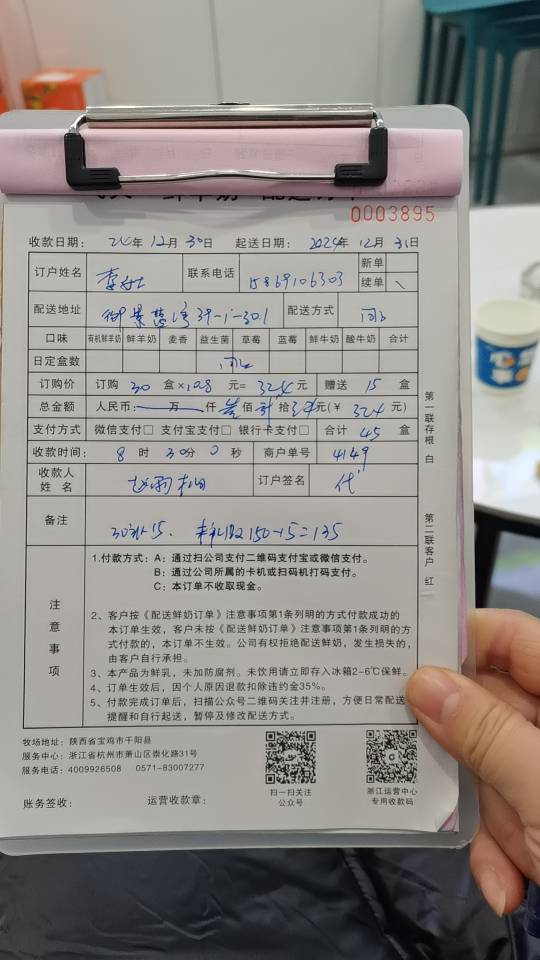 0003895
收款日期: 24年12月30日 起送日期: 2024年12月31日
订户姓名 李女士 联系电话 15869106303 新单
续单 \
配送地址 御景蓝湾39-1-301 配送方式
口味 有机鲜羊奶 鲜羊奶 麦香 益生菌 草莓 蓝莓 鲜牛奶 酸牛奶 合计
日定盒数
订购价 订购 30 盒×10.8 元=324元 赠送 15 盒
总金额 人民币: 万 仟 叁佰 贰拾 元(¥ 324 元)
支付方式 微信支付□ 支付宝支付□ 银行卡支付□ 合计 45 盒
收款时间: 8 时 30分 0 秒 商户单号 4149
收款人姓名 订户签名 代
备注 30补15. 150-15=135
注意事项
1.付款方式: A: 通过扫公司支付二维码支付宝或微信支付。
B: 通过公司所属的卡机或扫码机打码支付。
C: 本订单不收取现金。
2、客户按《配送鲜奶订单》注意事项第1条列明的方式付款成功的
本订单生效，客户未按《配送鲜奶订单》注意事项第1条列明的方
式付款的，本订单不生效。公司有权拒绝配送鲜奶，发生损失的，
由客户自行承担。
3、本产品为鲜乳，未加防腐剂。未饮用请立即存入冰箱2-6℃保鲜。
4、订单生效后，因个人原因退款扣除违约金35%。
5、付款完成订单后，扫描公众号二维码关注并注册，方便日常配送
提醒和自行起送，暂停及修改配送方式。
第一联存根 白
第二联客户 红
牧场地址: 陕西省宝鸡市千阳县
服务中心: 浙江省杭州市萧山区崇化路31号
服务电话: 4009926508 0571-83007277
扫一扫关注
公众号
浙江运营中心
专用收款码
账务签收: 运营收款章: